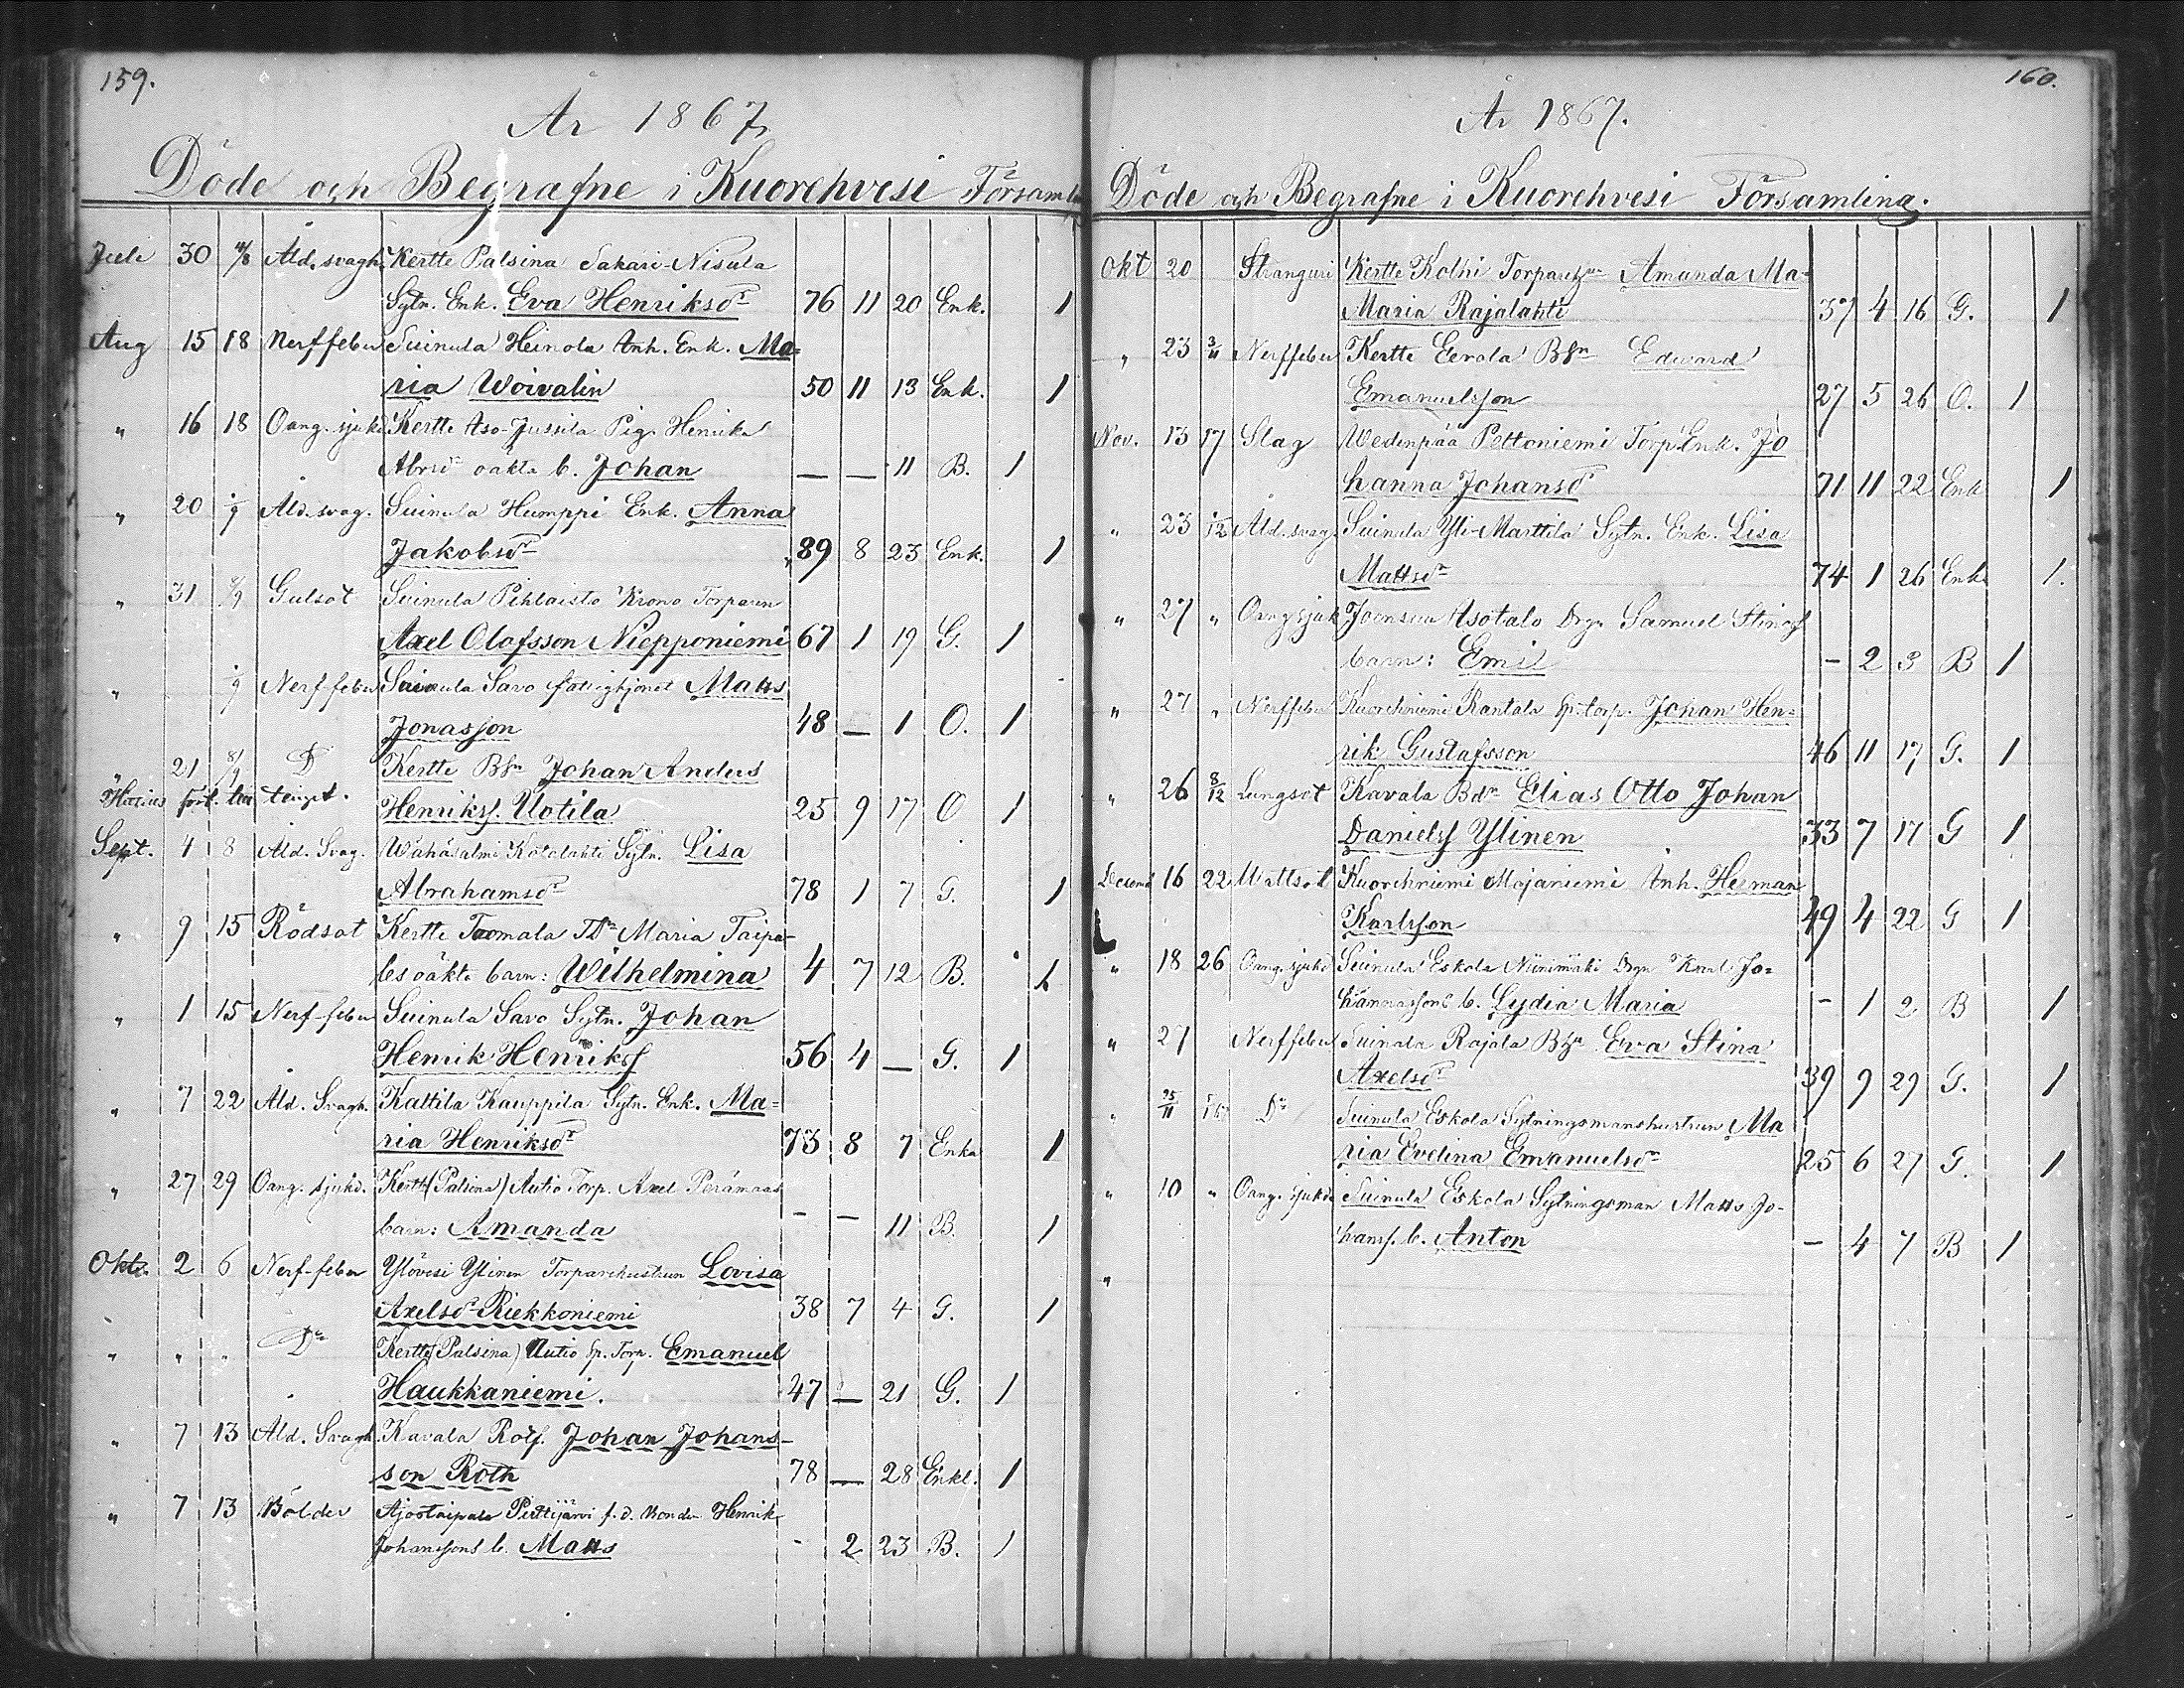 159.
År 1867
Döde och Begrafne i Kuorehvesi Församling
Juli 30 4/8 Åld.svagh. Kertte Palsina Sakari-Nisula
Sytn. Enk. Eva Henriksdr 76 11 20 Enk. 1
Aug 15 18 Nerffeber Suinula Heinola Inh. Enk. Ma=
ria Woivalin 50 11 13 Enk. 1
" 16 18 Oang. sjukd Kertte Aso-Jussila Pig. Henrika
Abrsdr oäkta b. Johan — — 11 B. 1
" 20 1/9 Åld.svag. Suinula Humppi Enk. Anna
Jakobsdr 89 8 23 Enk. 1
" 31 8/9 Gulsot Suinula Pihlaisto Krono Torparen
Axel Olofsson Niepponiemi 67 1 19 G. 1
" 1/9 Nerf-feber Suinula Savo fattighjonet Matts
Jonasson 48 — 1 O. 1
21 8/9 Do Kertte Bsn Johan Anders
Henriksf. Uotila 25 9 17 O 1
Sept. 4 8 Åld. Svag. Wähäsalmi Kotolahti Sytn. Lisa
Abrahamsdr 78 1 7 G. 1
" 9 15 Rödsot Kertte Tuomala TDr Maria Taipa-
les oäkta barn: Wilhelmina 4 7 12 B. 1
" 1 15 Nerf-feber Suinula Savo Sytn. Johan
Henrik Henriksf 56 4 — G. 1
" 7 22 Åld. Svagh. Kattila Kauppila Sytn. Enk. Ma=
ria Henriksdr 73 8 7 Enka 1
" 27 29 Oang. sjukd. Kertte (Palsina) Autio Torp. Axel Perämaas
barn: Amanda - — 11 B. 1
Oktr 2 6 Nerf-feber Ylövesi Ylinen Torparehustrun Lovisa
Axelsdr Riekkoniemi 38 7 4 G. 1
" " " Do Kertte (Palsina) Autio Sp. Torp. Emanuel
Haukkaniemi. 47 — 21 G. 1
" 7 13 Åld. Svagh. Kavala Rotf. Johan Johans-
son Roth 78 — 28 Enkl. 1
" 7 13 Bölder Ajostaipale Perttijärvi f. d. Bonden Henrik
Johanssons b. Matts - 2 23 B. 1
160.
År 1867.
Döde och Begrafne i Kuorehvesi Församling.
Okt 20 Stranguri Kertte Kolhi Amanda Ma-
Maria Rajalahti 37 4 16 G. 1
" 23 3/11 Nerffeber Kertte Eerola Bsn Edward
Emanuelsson 27 5 26 O. 1
Nov. 13 17 Slag Wedenpää Peltoniemi Torp.Enk. Jo
hanna Johansdr 71 11 22 Enk 1
" 23 1/12 Åld.svag. Suinula Yli-Marttila Sytn. Enk. Lisa
Mattsdr 74 1 26 Enk 1.
" 27 " Oang sjuk Joensuu Isotalo Drgn Samuel
barn: Emil - 2 3 B 1
" 27 " Nerffeber Kuorehniemi Rantala Sp.torp. Johan Hen=
rik Gustafsson 46 11 17 G. 1
" 26 8/12 Lungsot Kavala Bdn Elias Otto Johan
Danielsf Ylinen 33 7 17 G 1
Decemb 16 22 Wattsot Kuorehniemi Majaniemi Inh. Herman
Karlsson 49 4 22 G 1
" 18 26 Oang. sjukd Suinula Eskola Niinimäki Drgn Karl Jo=
hannassons b. Lydia Maria - 1 2 B 1
" 27 Nerffeber Suinula Rajala Eva Stina
Axelsdr 39 9 29 G. 1
" 25/11 Do Suinula Eskola Sytningsmanshustrun Ma
ria Evelina Emanuelsdr 25 6 27 G. 1
" 10 " Oang. sjukd Suinula Eskola Sytningsman Matts Jo-
hansf. b. Anton - 4 7 B 1
"